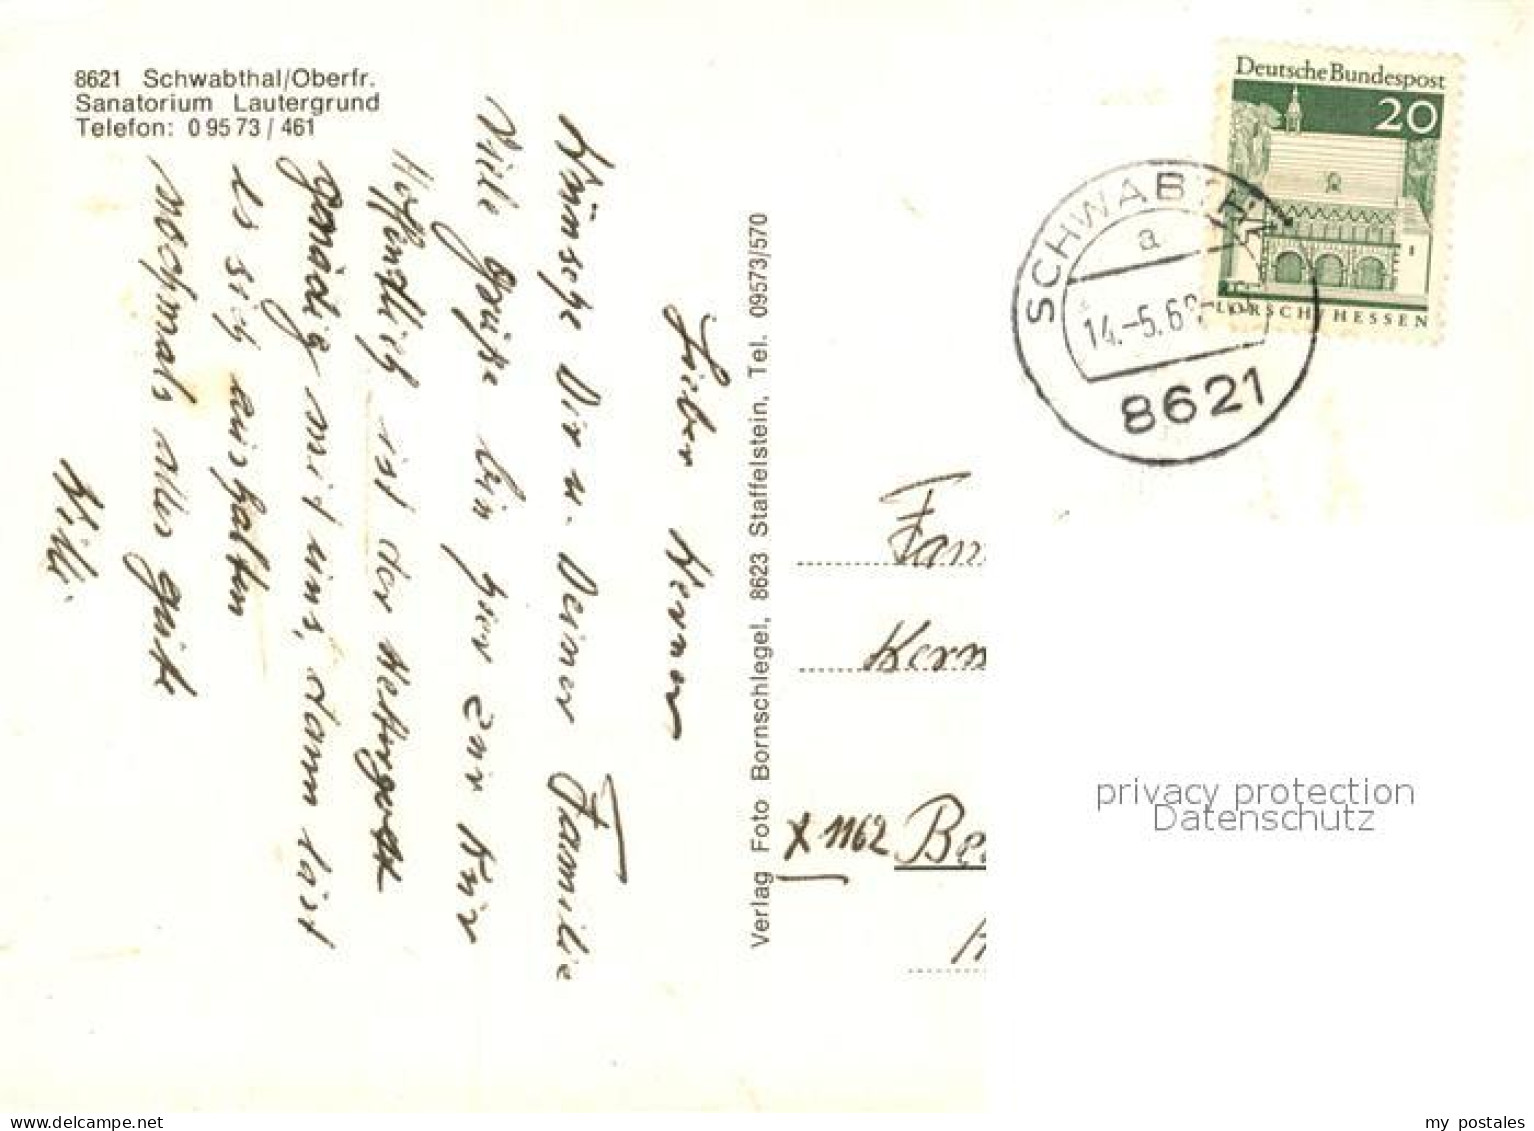 8621 Schwabthal/Oberfr.
Sanatorium Lautergrund
Telefon: 0 95 73 / 461
Deutsche Bundespost
20
LORSCH/HESSEN
SCHWABTH
a
14.-5.6
8621
Lieber Werner
Wünsche Dir u. Deiner Familie
Viele Grüße bin hier zur Kur
Hoffentlich ist der Wettergott
gnädig mit uns, dann läst
es sich aushalten
nochmals alles gute
Willi
Verlag Foto Bornschlegel, 8623 Staffelstein, Tel. 09573/570
Fam
Kern
X 1162
Be
privacy protection
Datenschutz
my postales
www.delcampe.net